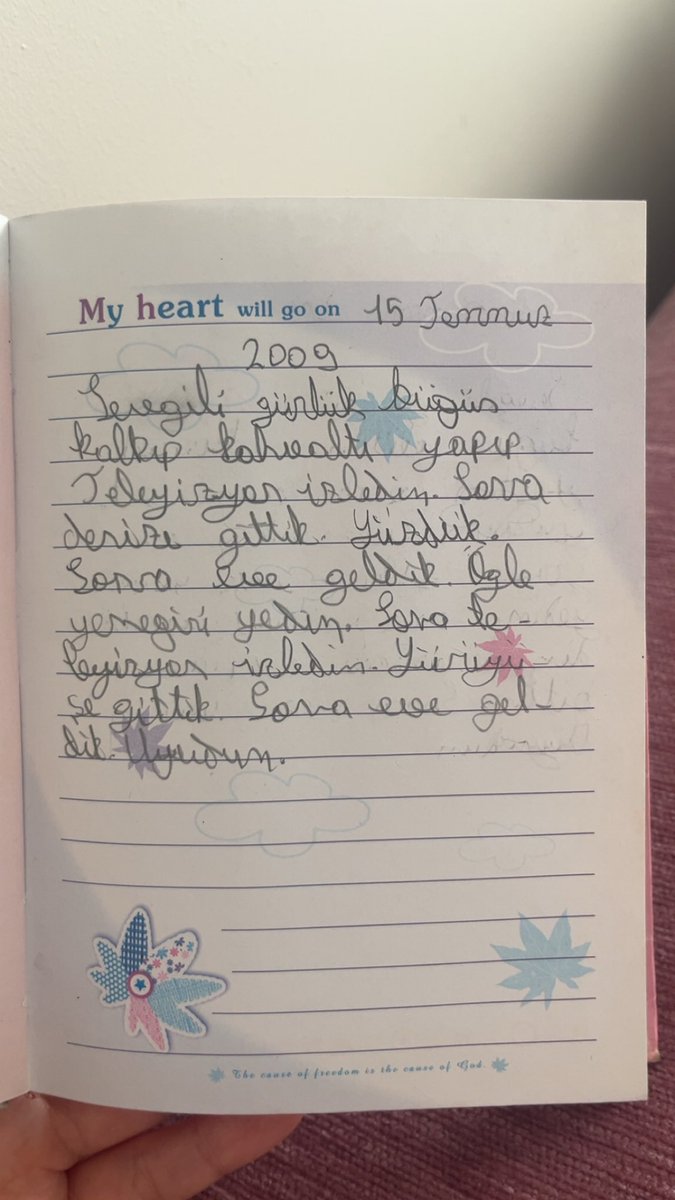 My heart will go on 15 Temmuz
2009
Sevegili günlük bügün
kalkıp kahvealtı yapıp
Televizyon izledim. Sonra
denize gittik. Yüzdük.
Sonra eve geldik. Öğle
yemeğini yedim. Sonra te-
levizyon izledim. Yürüyü
şe gittik. Sonra eve gel-
dik. Uyudum.
The cause of freedom is the cause of God.